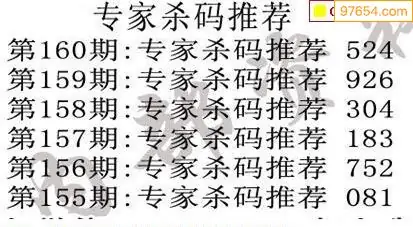 专家杀码推荐
97654.com
第160期:专家杀码推荐 524
第159期:专家杀码推荐 926
第158期:专家杀码推荐 304
第157期:专家杀码推荐 183
第156期:专家杀码推荐 752
第155期:专家杀码推荐 081